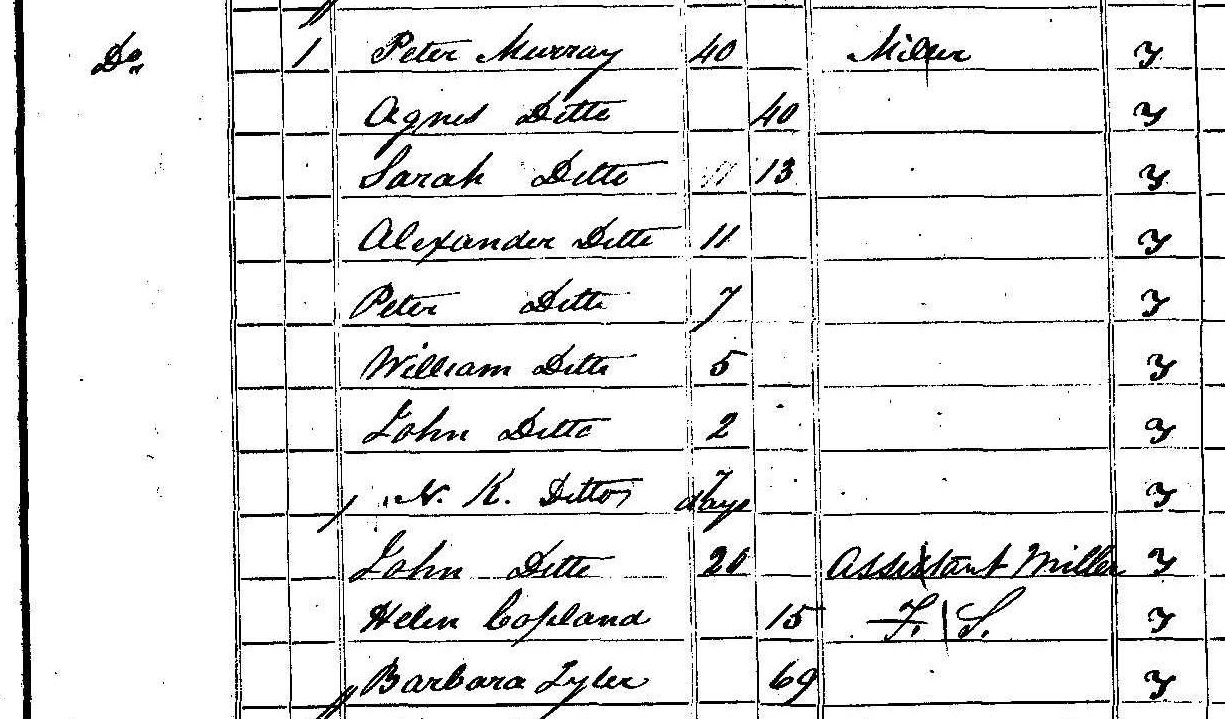 Do. 1 Peter Murray 40 Miller Y
Agnes Ditto 40 Y
Sarah Ditto 11 13 Y
Alexander Ditto 11 Y
Peter Ditto 7 Y
William Ditto 5 Y
John Ditto 2 Y
N. K. Ditto 7 days Y
John Ditto 20 Assistant Miller Y
Helen Copland 15 F. S. Y
Barbara Tyler 69 Y